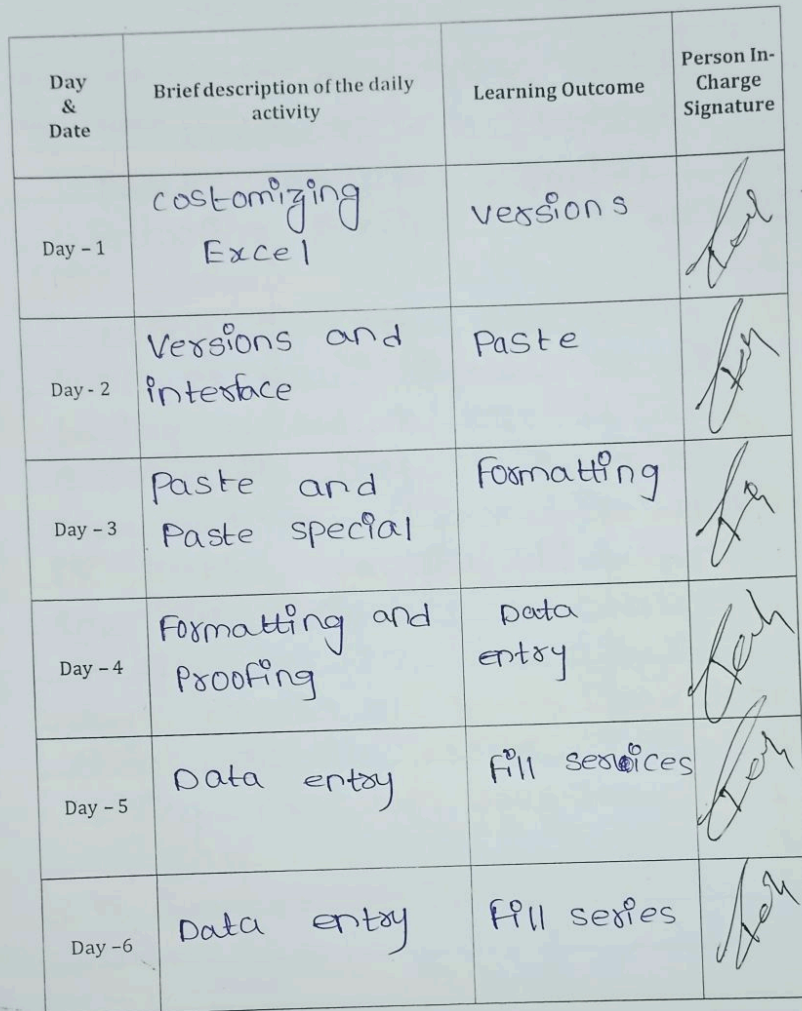 Day
&
Date
Brief description of the daily
activity
Learning Outcome
Person In-
Charge
Signature
Day – 1
costomizing
Excel
versions
Day - 2
Versions and
interface
Paste
Day – 3
Paste and
Paste special
Formatting
Day – 4
Formatting and
Proofing
Data
entry
Day – 5
Data entry
Fill services
Day –6
Data entry
Fill series